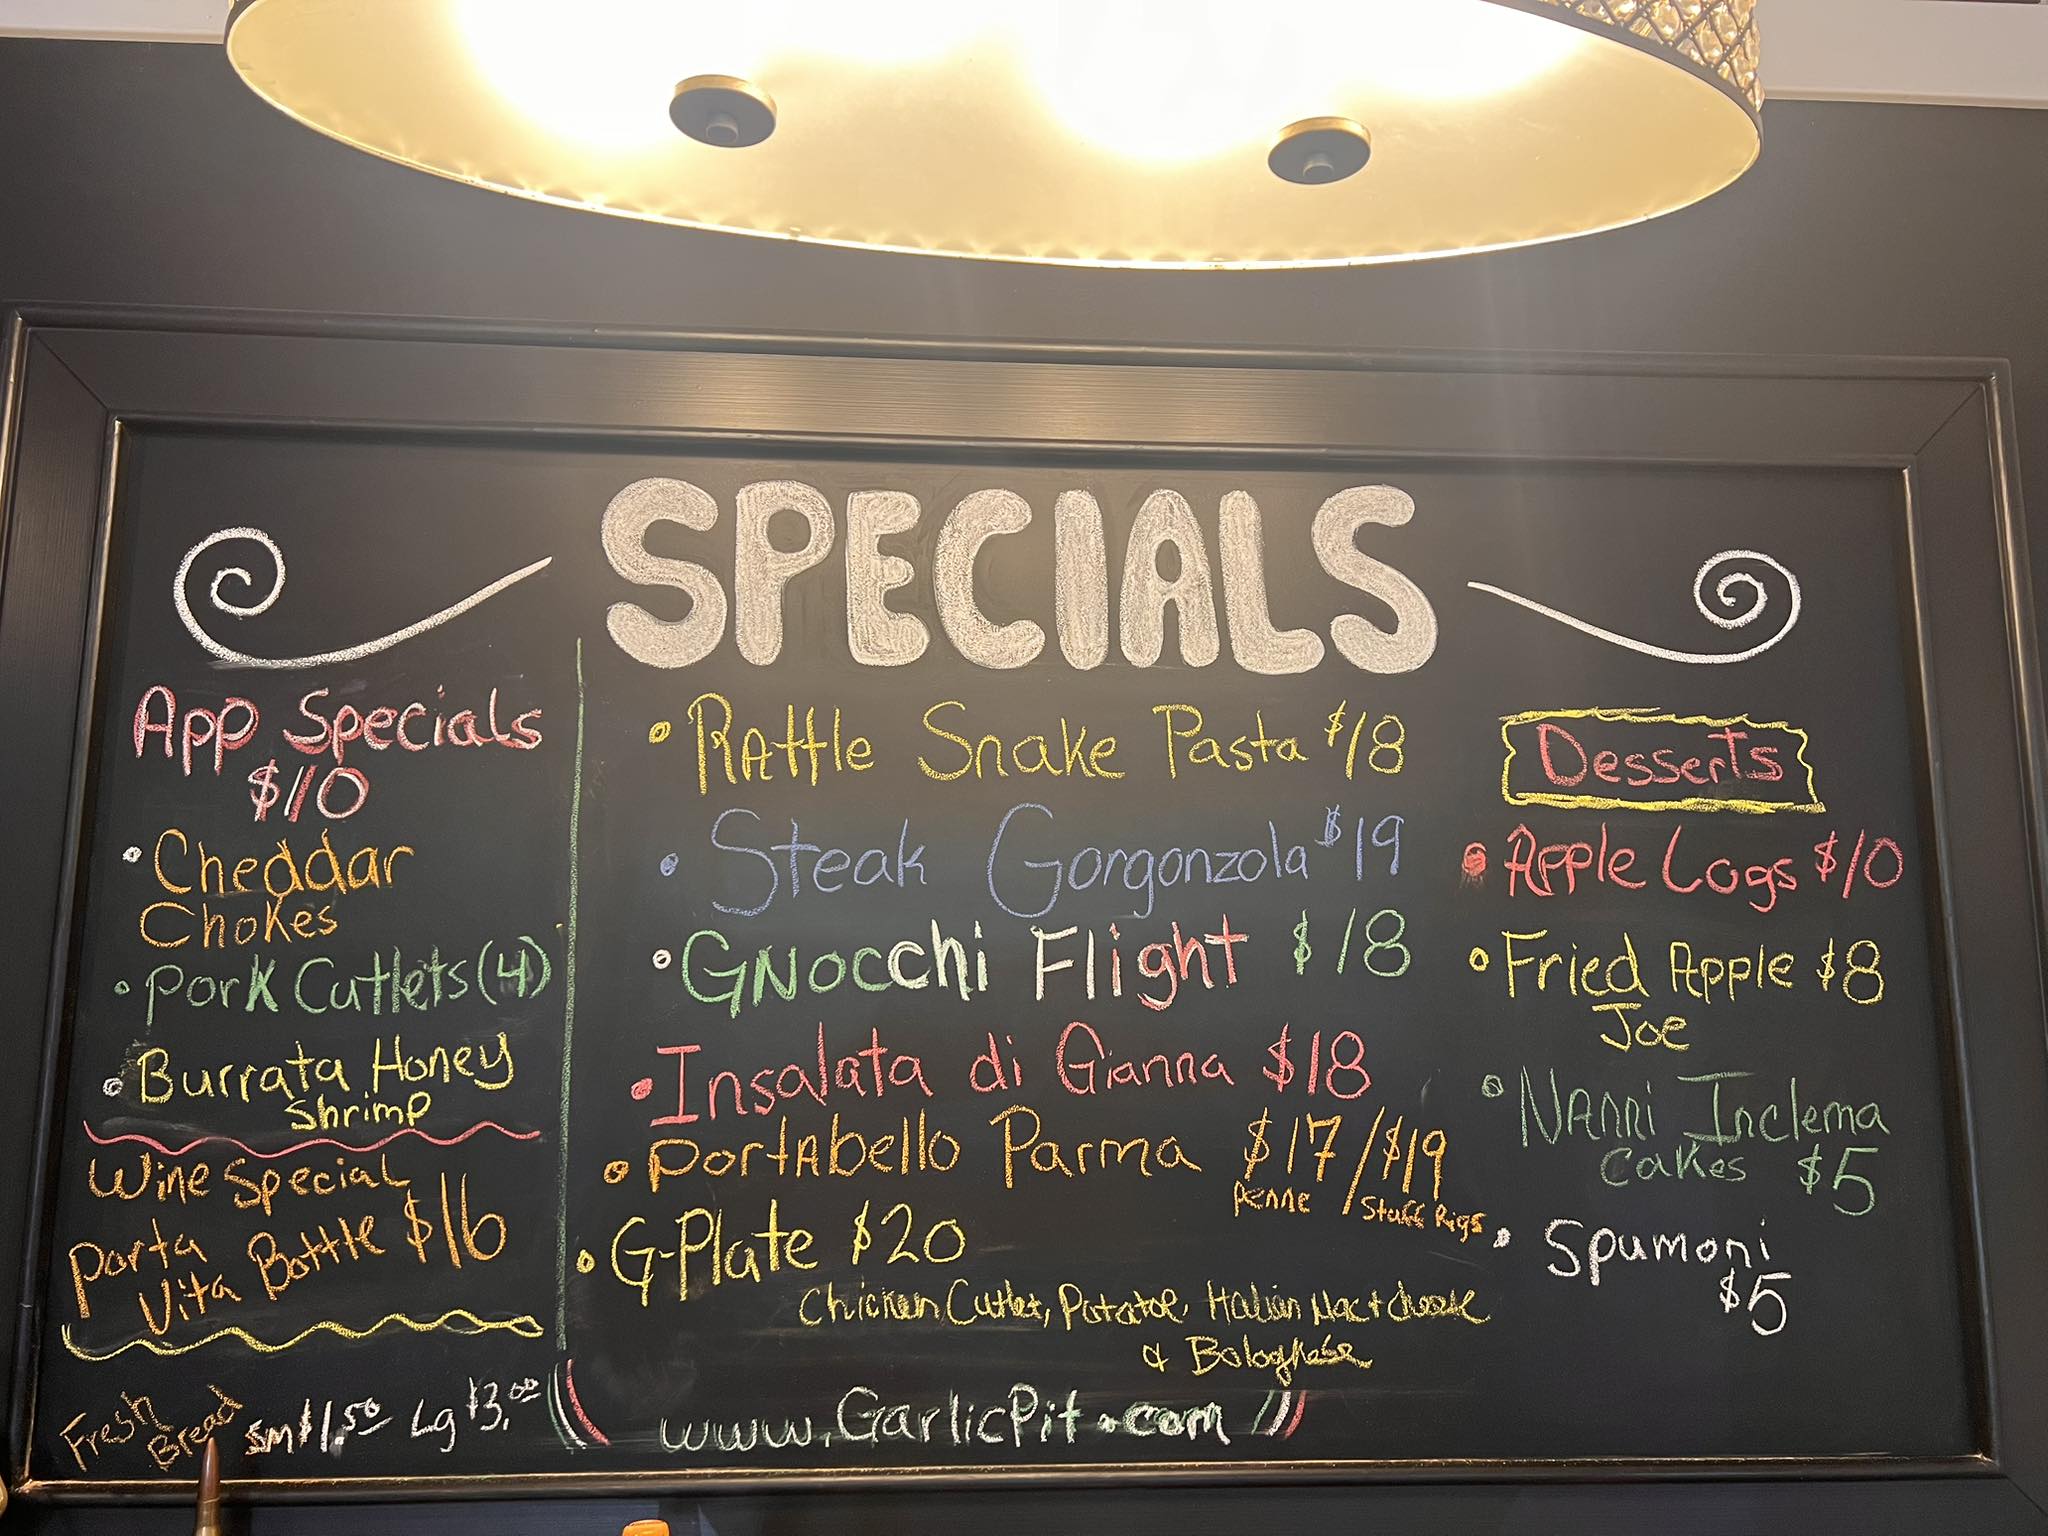 SPECIALS
App Specials
$10
Cheddar
Chokes
Pork Cutlets (4)
Burrata Honey
Shrimp
Wine Special
Porta
Vita Bottle $16
Fresh
Bread Sm $1.50 Lg $3.00
Rattle Snake Pasta $18
Steak Gorgonzola $19
Gnocchi Flight $18
Insalata di Gianna $18
Portabello Parma $17/$19
Penne / Stuff Rigs
G-Plate $20
Chicken Cutlet, Potatoe, Italian Mac + cheese
& Bolognese
www.GarlicPit.com
Desserts
Apple Logs $10
Fried Apple $8
Joe
Nanni Inclema
Cakes $5
Spumoni
$5